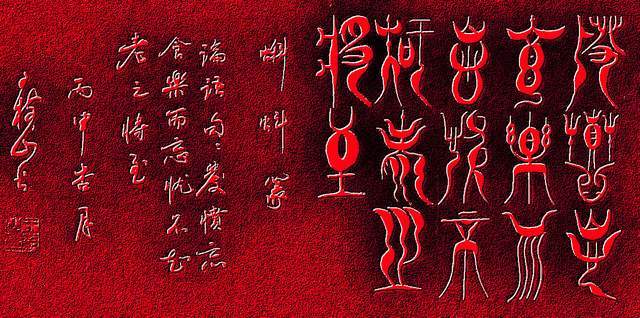 發憤忘
食樂而
忘憂不
知老之
將至
蝌蚪篆
論語句：發憤忘
食樂而忘憂不知
老之將至
丙申杏月